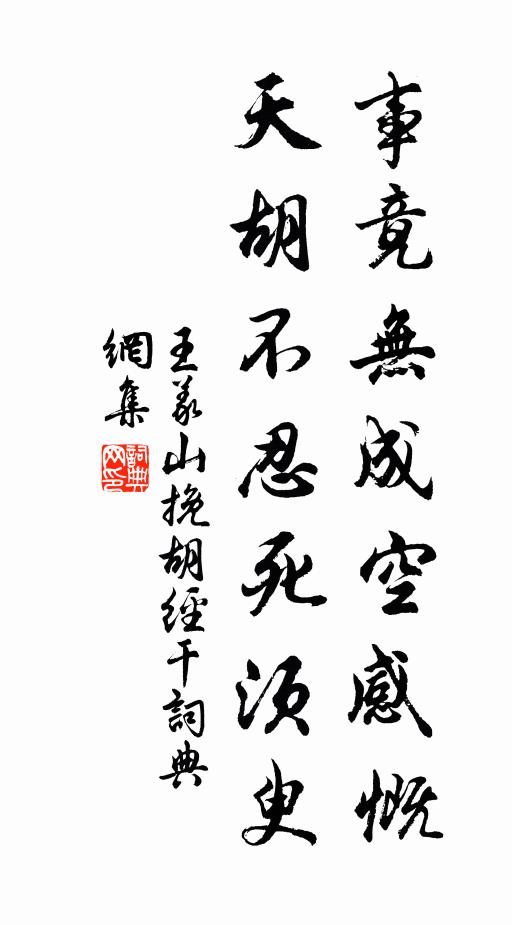 事竟無成空感慨
天胡不忍死須臾
王義山挽胡經干詞典
網集
詞典
网印